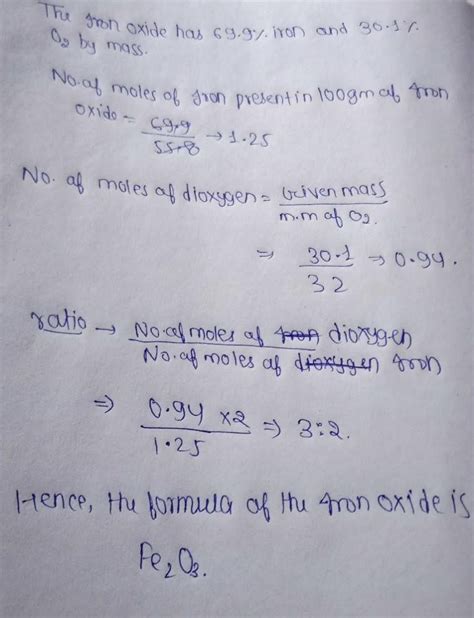 The Iron oxide has 69.9% iron and 30.1%
O2 by mass.
No.of moles of Iron present in 100gm of Iron
oxide = 69.9/55.8 → 1.25
No. of moles of dioxygen = Given mass/m.m of O2.
⇒ 30.1/32 → 0.94.
ratio → No.of moles of Iron dioxygen/No.of moles of dioxygen Iron
⇒ 0.94 x2/1.25 ⇒ 3:2.
Hence, the formula of the Iron oxide is
Fe2O3.